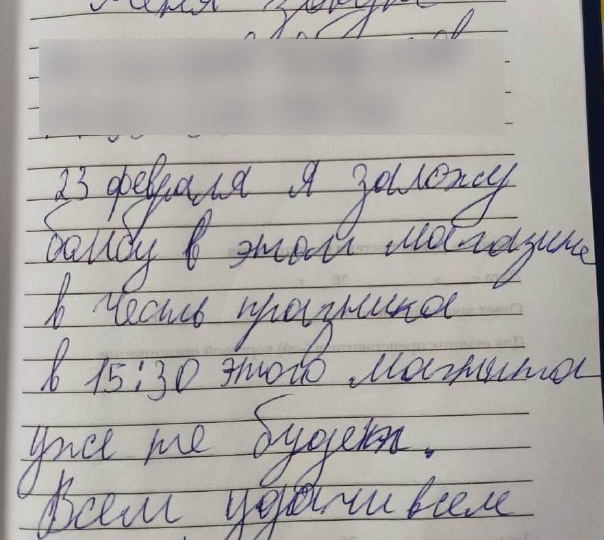 Меня зовут
23 февраля я заложу
бомбу в этом магазине
в честь празника
в 15:30 этого магнита
уже не будет.
Всем удачи всем